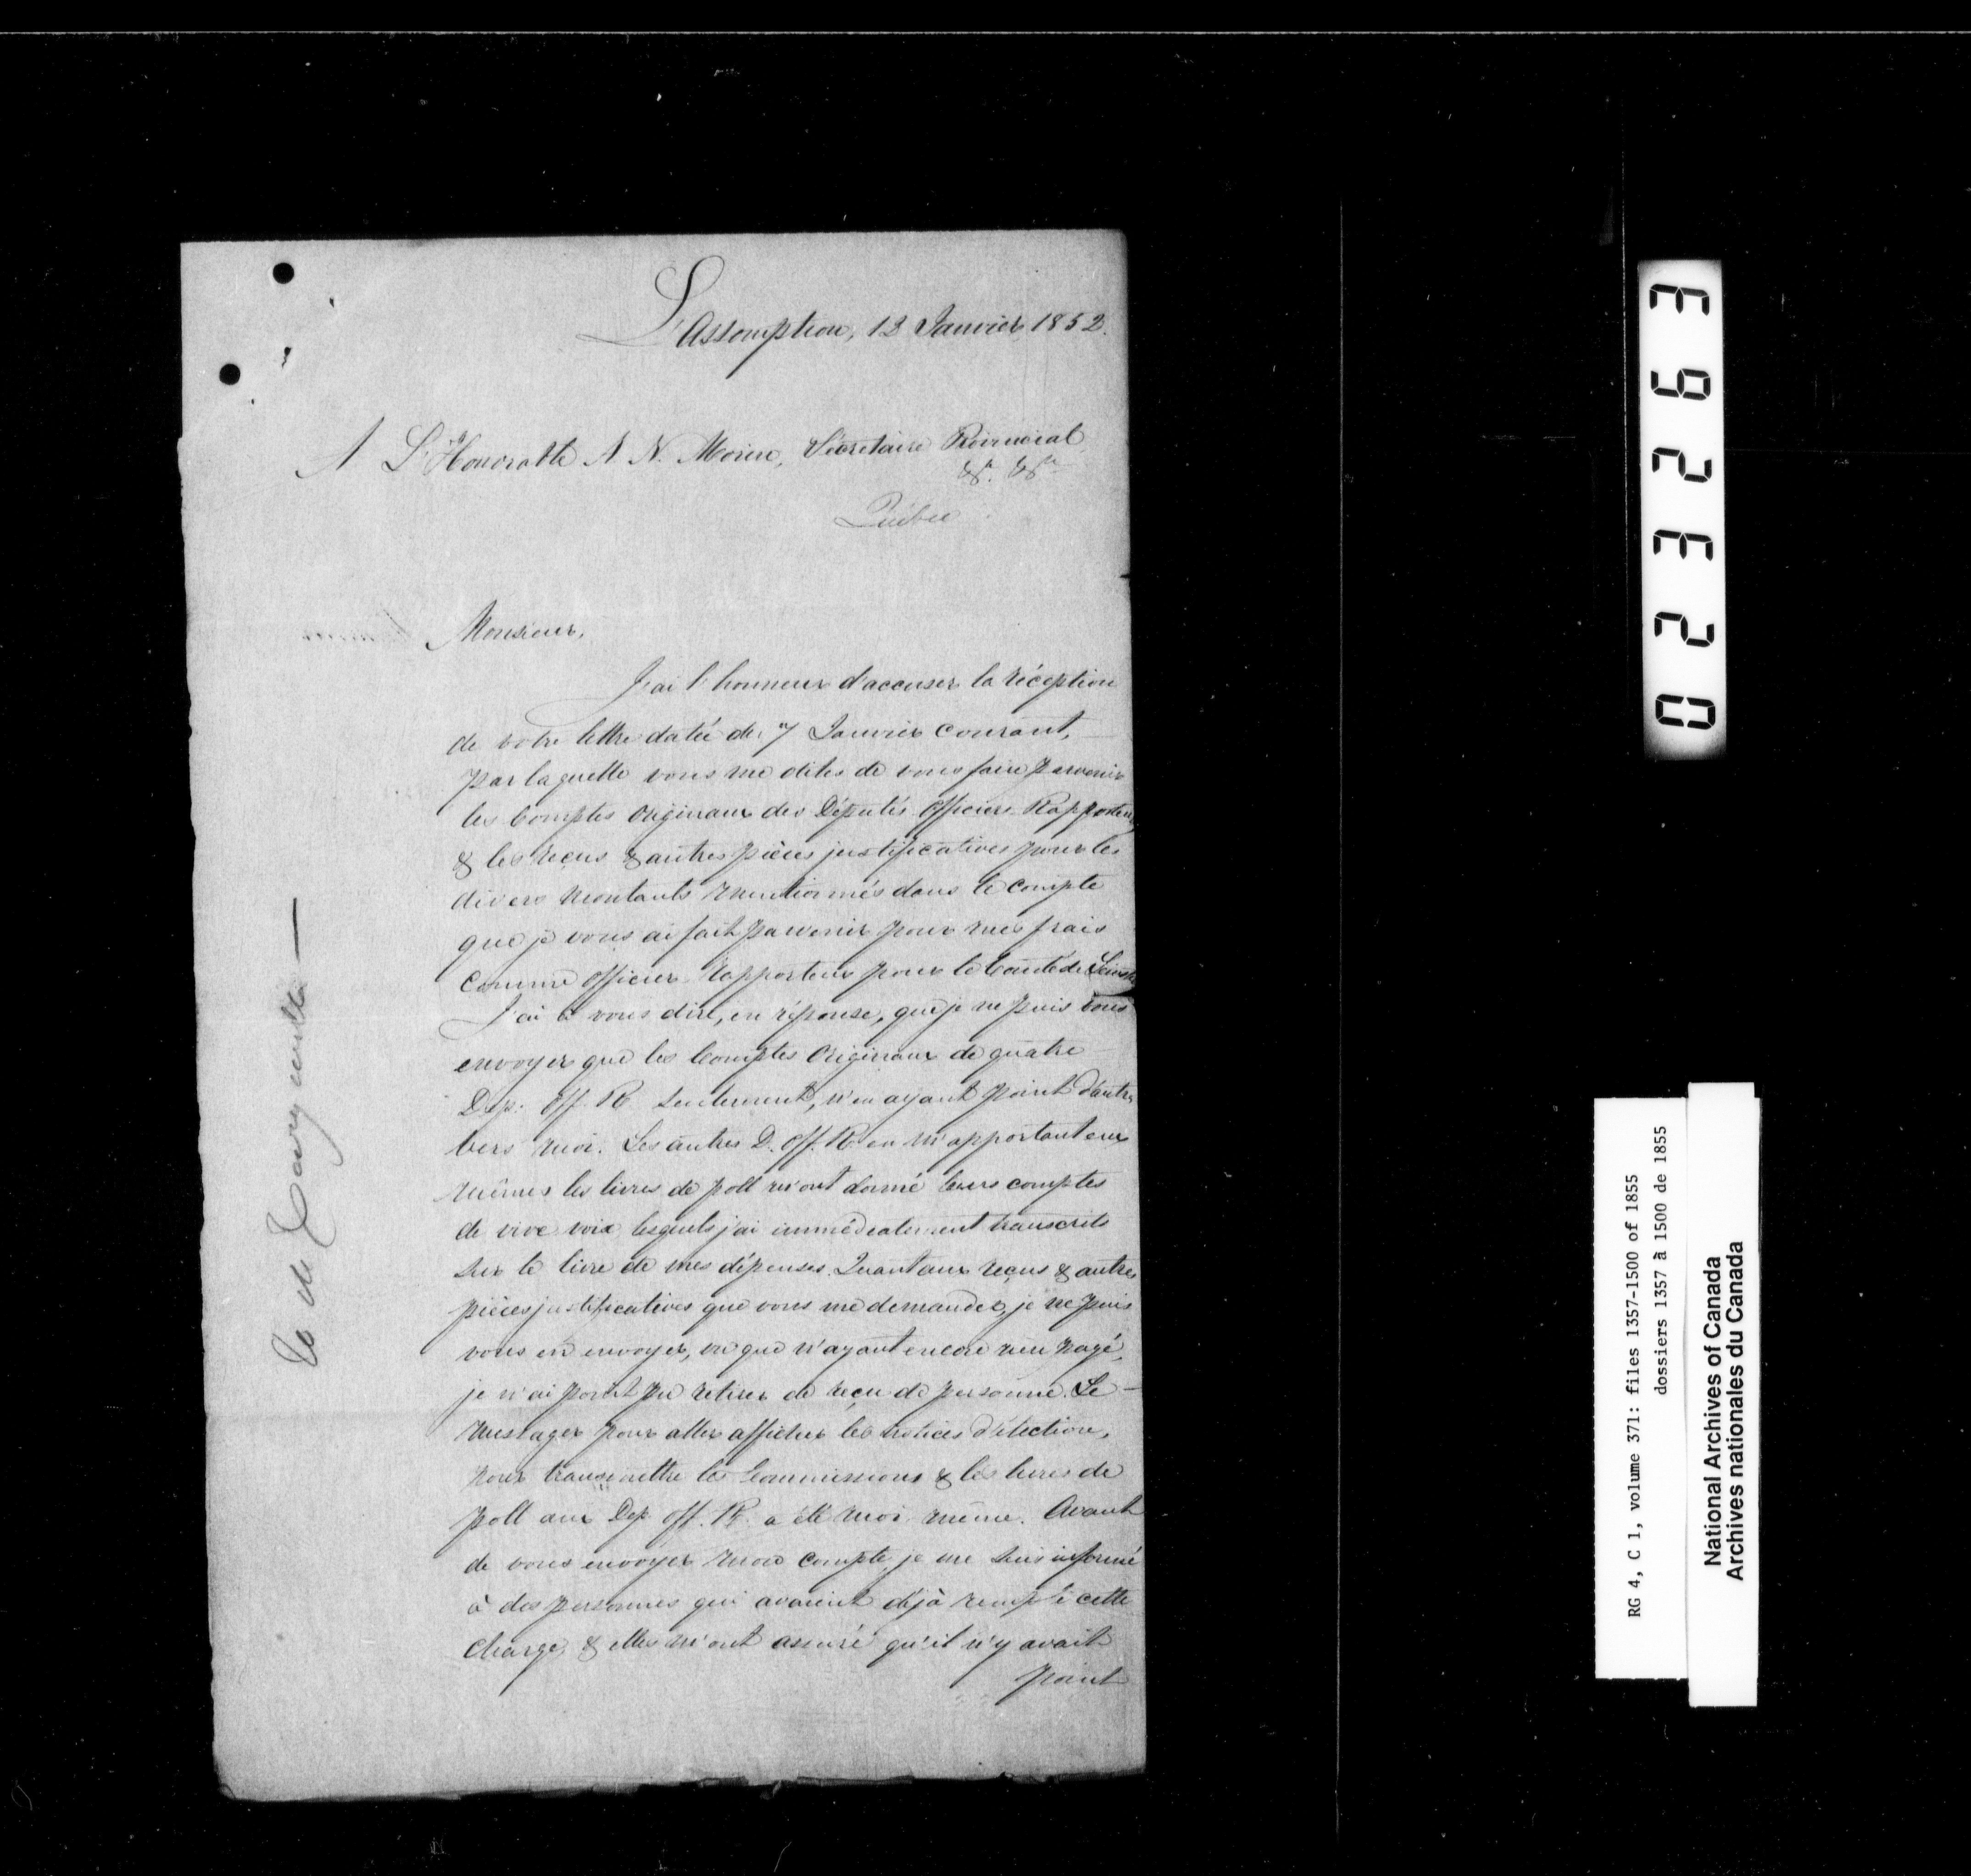 L'Assomption, 13 Janvier 1852.
A L'Honorable A. N. Morin, Sécretaire Provincial
&c. &c
Québec
Monsieur,
J'ai l'honneur d'accuser la réception
de votre lettre datée du 7 Janvier courant,
par laquelle vous me dites de vous faire parvenir
les Comptes originaux des Députés Officiers Rapporteurs
& les reçus & autres pièces justificatives pour les
divers montants mentionnés dans le compte
que je vous ai fait parvenir pour mes frais
comme Officier Rapporteur pour le Comté de Leinster
J'ai à vous dire, en réponse, que je ne puis vous
envoyer que les Comptes Originaux de quatre
Dép. Off. R seulement, n'en ayant point d'autres
vers moi. Les autres D. Off. R. en m'apportant eux
mêmes les livres de poll m'ont donné leurs comptes
de vive voix lesquels j'ai immédiatement transcrits
sur le livre de mes dépenses. Quant aux reçus & autres
pièces justificatives que vous me demandez, je ne puis
vous en envoyer, vu que n'ayant encore rien payé,
je n'ai point pu retirer de reçu de personne. Le
messager pour aller afficher les notices d'élection,
pour transmettre les Commissions & les livres de
poll aux Dép Off. R. a été moi même. Avant
de vous envoyer mon compte, je me suis informé
à des personnes qui avaient déjà rempli cette
charge, & elles m'ont assuré qu'il n'y avait
point
0 2 3 2 6 3
RG 4, C 1, volume 371: files 1357-1500 of 1855
dossiers 1357 à 1500 de 1855
National Archives of Canada
Archives nationales du Canada